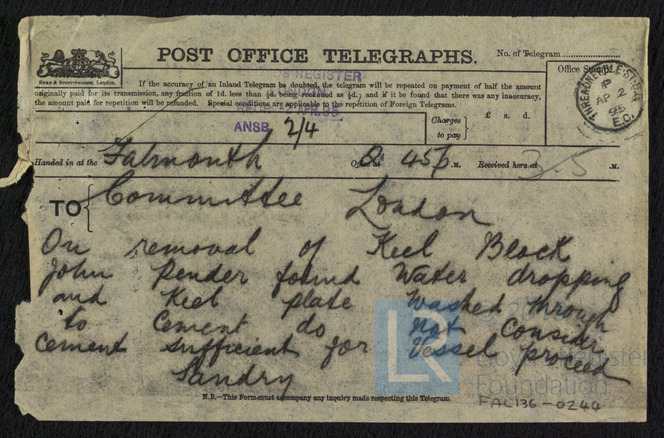 POST OFFICE TELEGRAPHS.
No. of Telegram
If the accuracy of an Inland Telegram be doubted, the telegram will be repeated on payment of half the amount
originally paid for its transmission, any fraction of 1d. less than ½d. being reckoned as ½d.; and if it be found that there was any inaccuracy,
the amount paid for repetition will be refunded. Special conditions are applicable to the repetition of Foreign Telegrams.
Office Stamp.
THREADNEEDLE STREET
AP 2
E.C.
REGISTER
ANSD 2/4
Charges to pay } £ s. d.
Handed in at the Falmouth Office at 2.45 P.M. Received here at 3.5 .M.
TO { Committee London
On removal of Keel Block
John Pender found Water dropping
and Keel plate washed through
to cement do not consider
cement sufficient for Vessel proceed
Sandry
N.B.—This Form must accompany any inquiry made respecting this Telegram.
LR
Lloyd's Register
Foundation
FAL136-0244